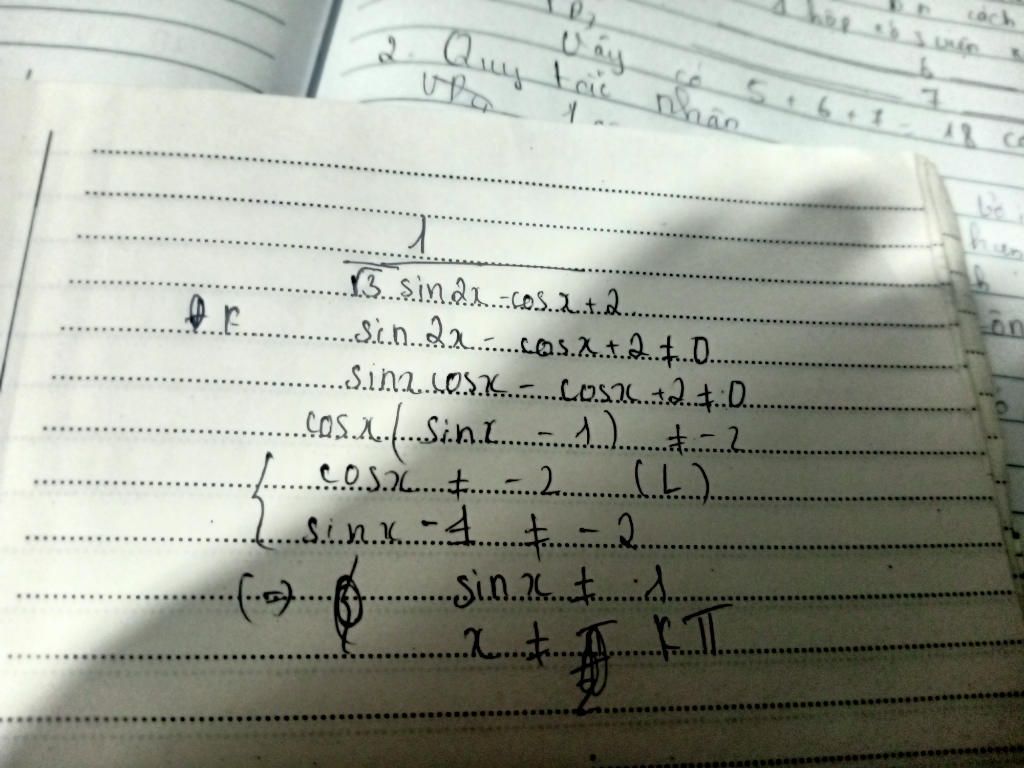 2. Quy tắc nhân
Vậy có 5 + 6 + 7 = 18
cách
6
7
1
√3 sin2x - cosx + 2
sin 2x - cosx + 2 ≠ 0
sinx cosx - cosx + 2 ≠ 0
cosx ( sinx - 1 ) ≠ - 2
{ cosx ≠ - 2 (L)
sinx - 1 ≠ - 2
(=) sinx ≠ 1
x ≠ kπ